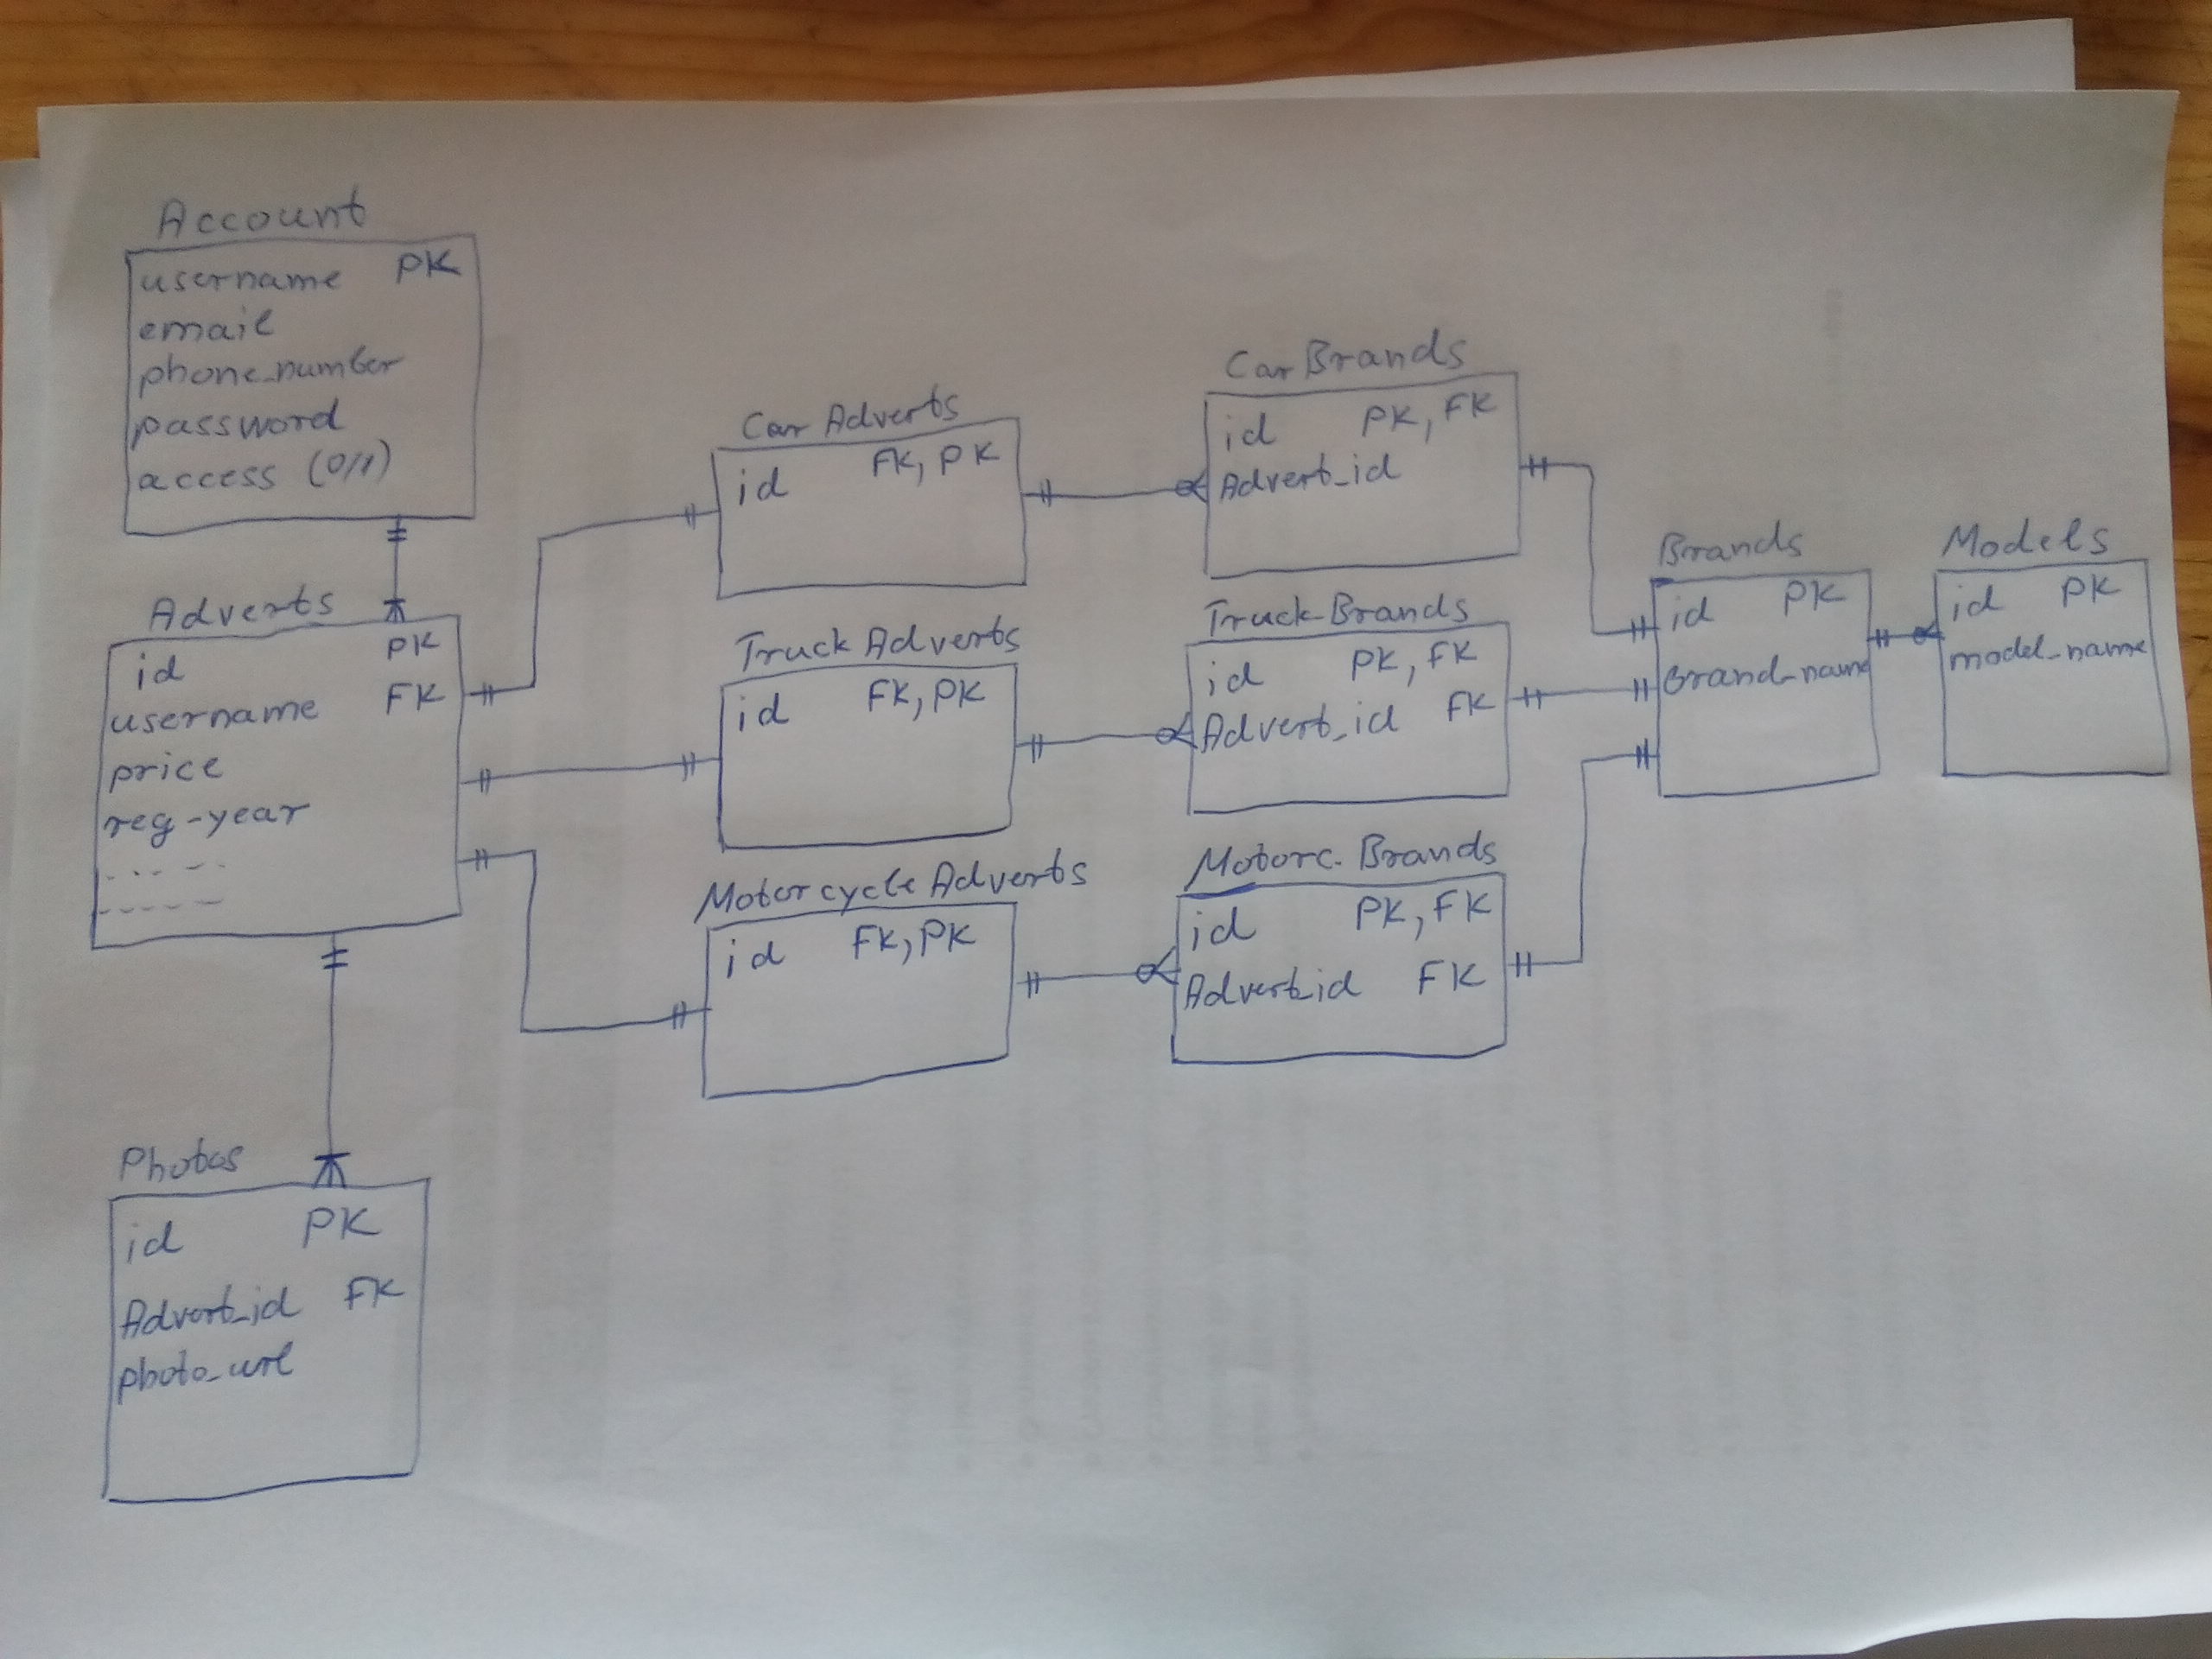 Account
username PK
email
phone_number
password
access (0/1)
Adverts
id PK
username FK
price
reg-year
Photos
id PK
Advert_id FK
photo_url
Car Adverts
id FK, PK
Truck Adverts
id FK, PK
Motorcycle Adverts
id FK, PK
Car Brands
id PK, FK
Advert_id
Truck-Brands
id PK, FK
Advert_id FK
Motorc. Brands
id PK, FK
Advert_id FK
Brands
id PK
Brand_name
Models
id PK
model_name